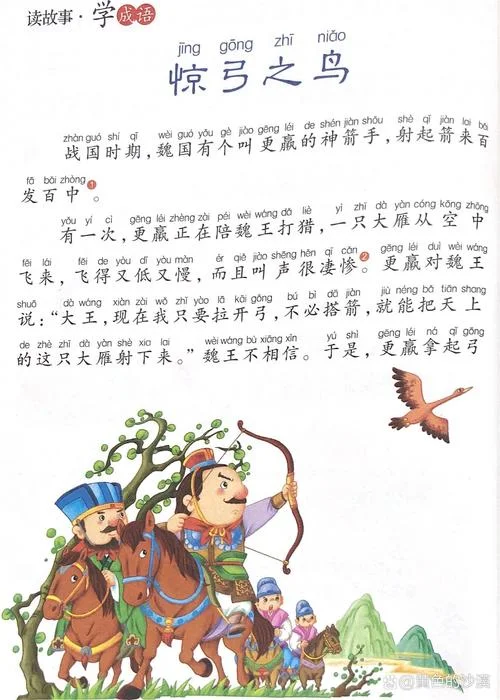 读故事·学成语
jīng gōng zhī niǎo
惊弓之鸟
zhàn guó shí qī wèi guó yǒu gè jiào gēng léi de shén jiàn shǒu shè qǐ jiàn lai bǎi
战国时期，魏国有个叫更羸的神箭手，射起箭来百
fā bǎi zhòng
发百中❶。
yǒu yí cì gēng léi zhèng zài péi wèi wáng dǎ liè yì zhī dà yàn cóng kōng zhōng
有一次，更羸正在陪魏王打猎，一只大雁从空中
fēi lái fēi de yòu dī yòu màn ér qiě jiào shēng hěn qī cǎn gēng léi duì wèi wáng
飞来，飞得又低又慢，而且叫声很凄惨❷。更羸对魏王
shuō dà wáng xiàn zài wǒ zhǐ yào lā kāi gōng bú bì dā jiàn jiù néng bǎ tiān shàng
说：“大王，现在我只要拉开弓，不必搭箭，就能把天上
de zhè zhī dà yàn shè xia lai wèi wáng bù xiāng xìn yú shì gēng léi ná qǐ gōng
的这只大雁射下来。”魏王不相信。于是，更羸拿起弓
@黄色的沙漠